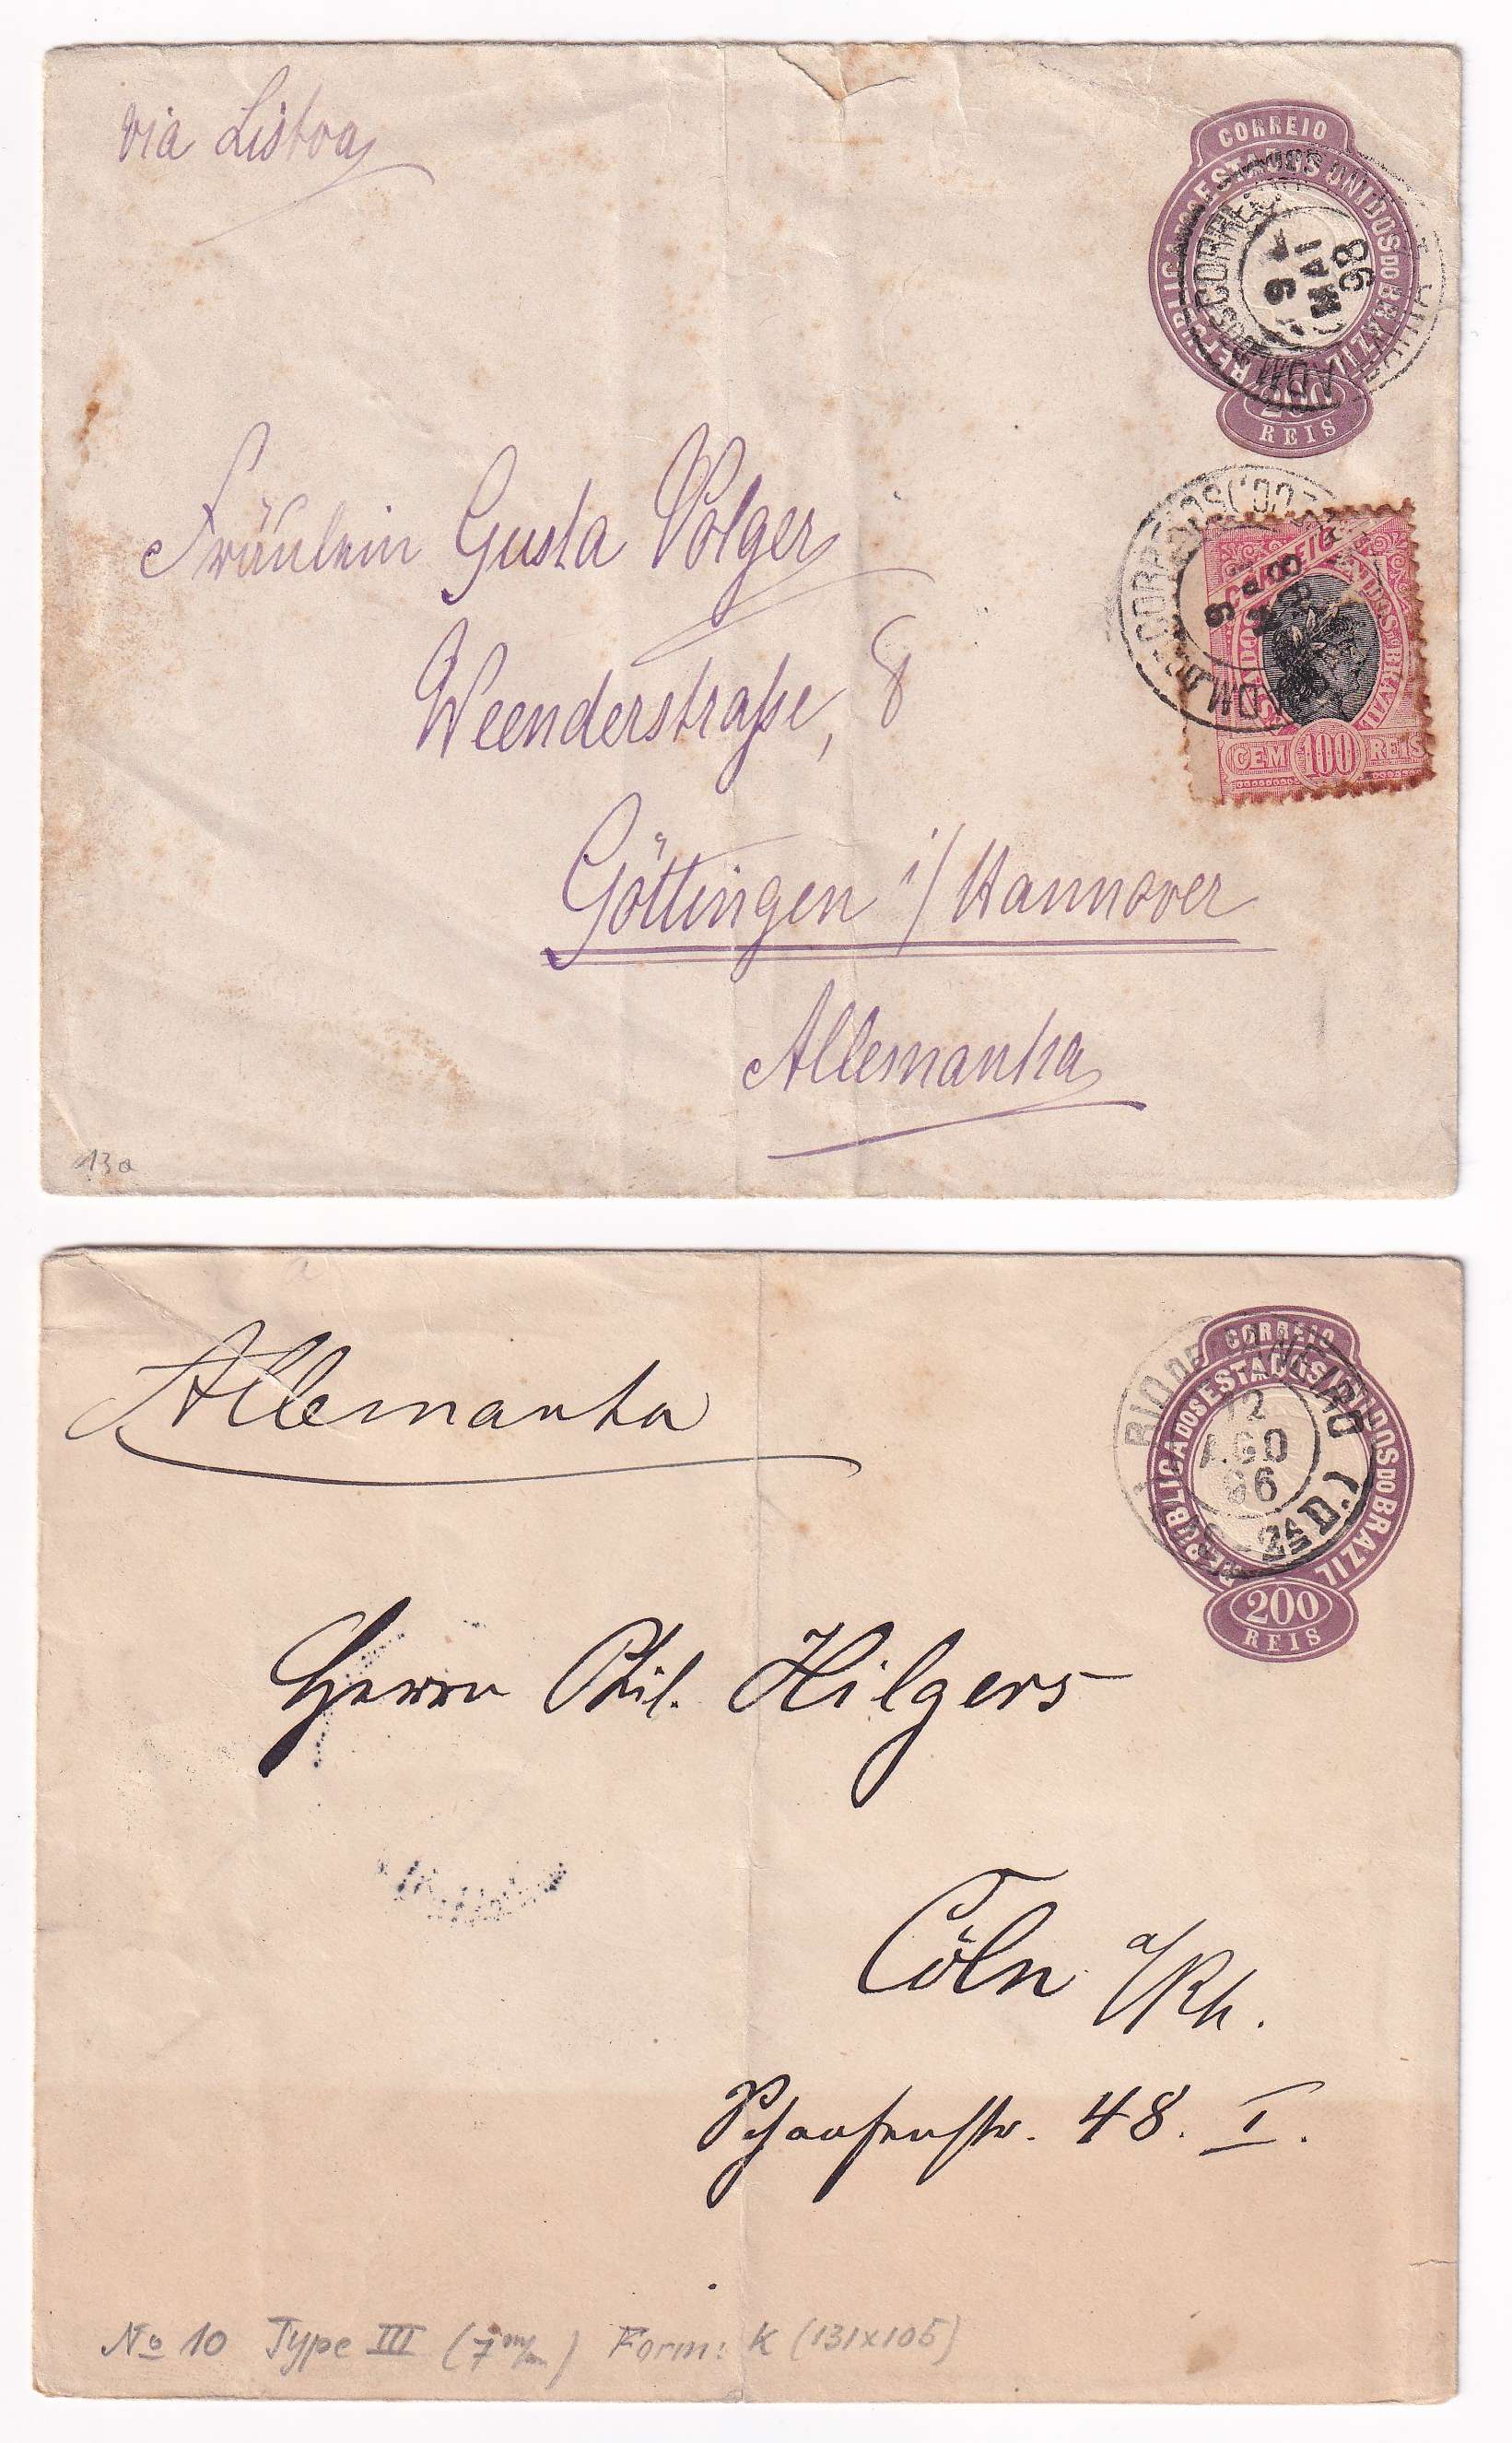 via Lisboa
CORREIO
REPUBLICA DOS ESTADOS UNIDOS DO BRAZIL
200
REIS
9
MAI
98
Fräulein Gusta Volger
Weenderstraße, 8
CEM 100 REIS
Göttingen i/Hannover
Allemanha
13a
Allemanha
CORREIO
REPUBLICA DOS ESTADOS UNIDOS DO BRAZIL
RIO DE JANEIRO
12
AGO
96
200
REIS
Herrn Phil. Hilgers
Cöln a/Rh.
Schaafenstr. 48. I.
No 10 Type III (7 m/m) Form: K (131x105)